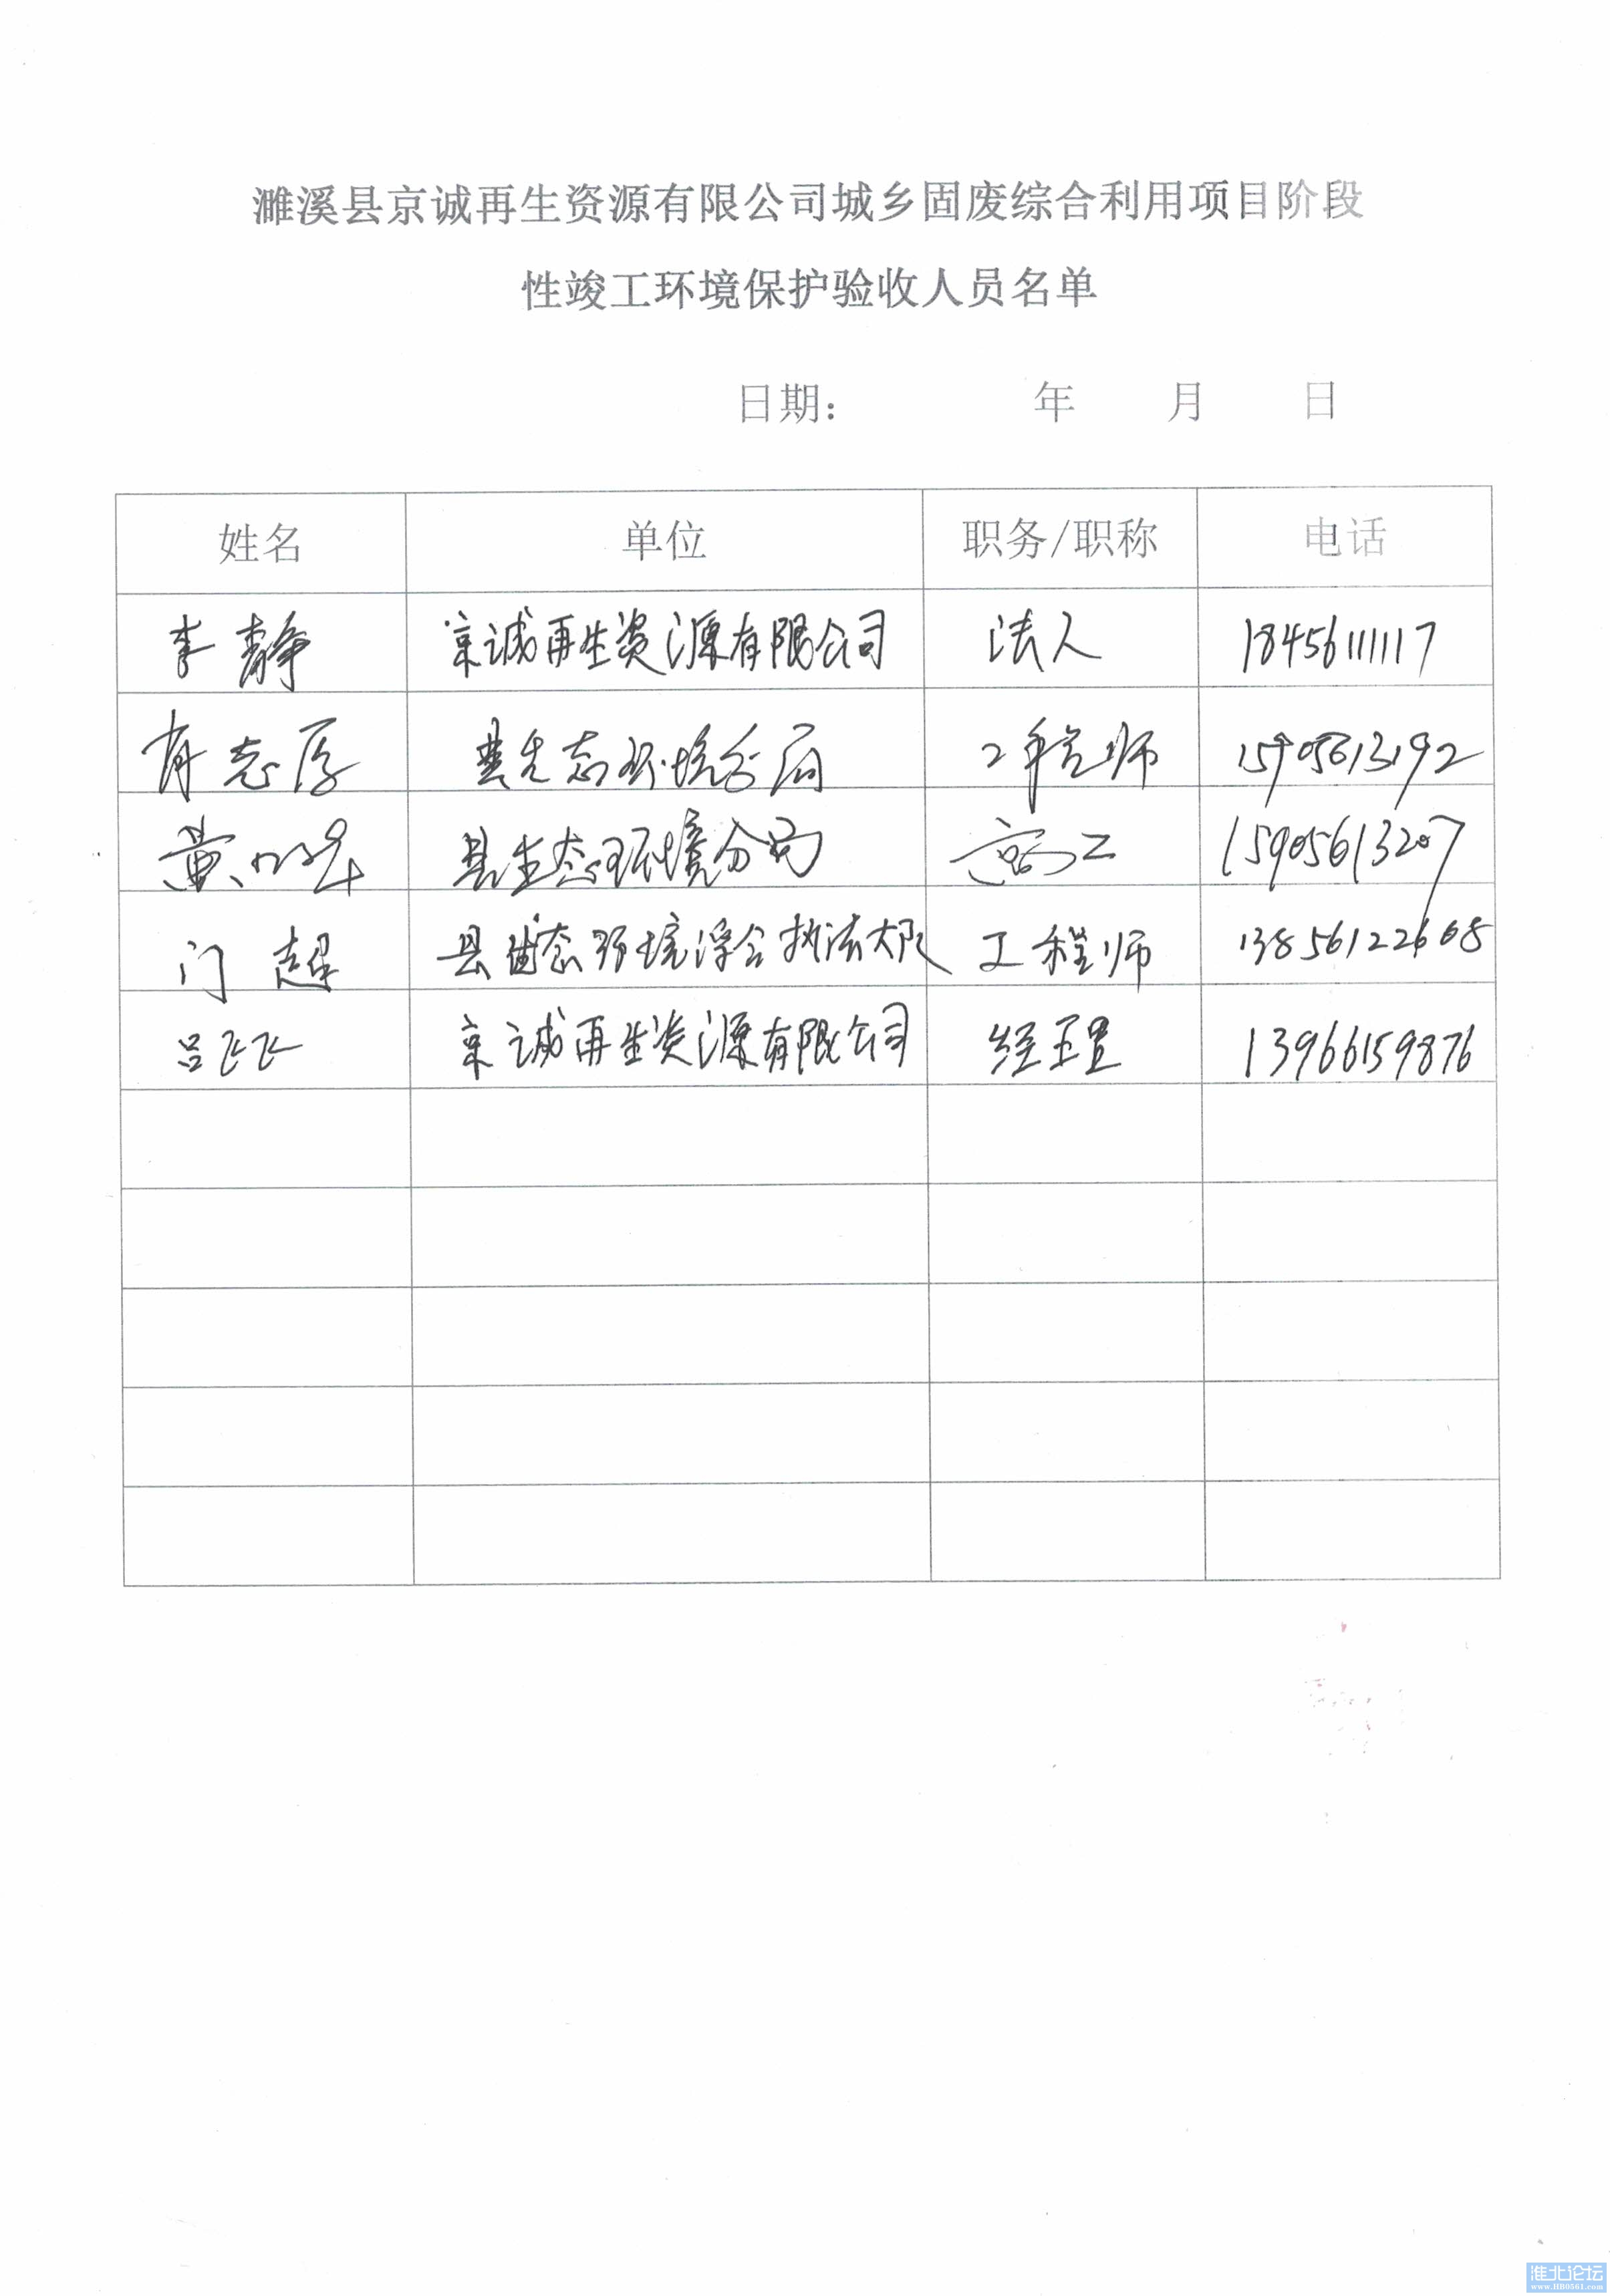 濉溪县京诚再生资源有限公司城乡固废综合利用项目阶段
性竣工环境保护验收人员名单
日期: 年 月 日
姓名 单位 职务/职称 电话
李静 京诚再生资源有限公司 法人 18456111117
志厚 县生态环境分局 工程师 15905613192
黄 县生态环境分局 高工 15905613207
门超 县生态环境综合执法大队 工程师 13856122668
吕飞飞 京诚再生资源有限公司 经理 13966159876
淮北论坛
www.HB0561.com